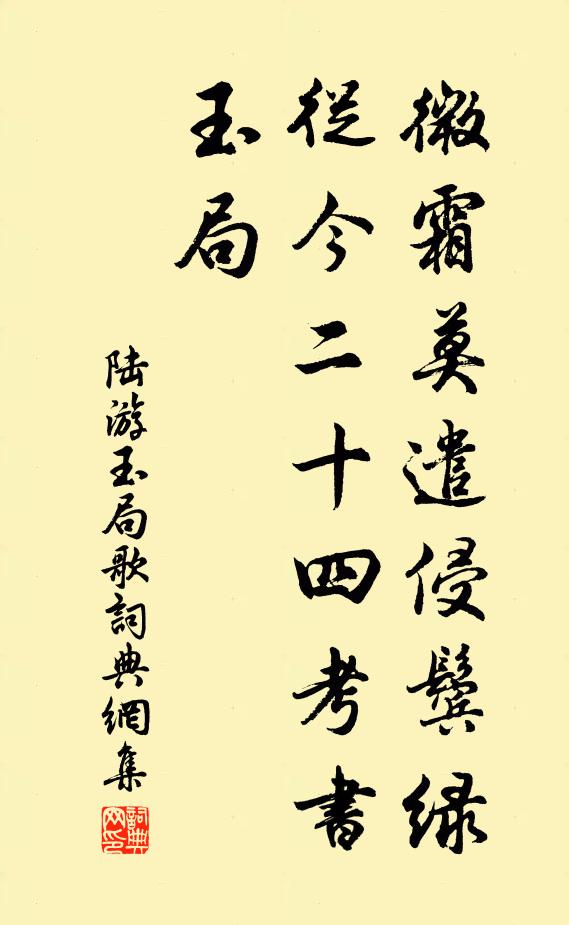 微霜莫遣侵鬓绿
從今二十四考書
玉局
陆游玉局歌詞典網集
詞典网印